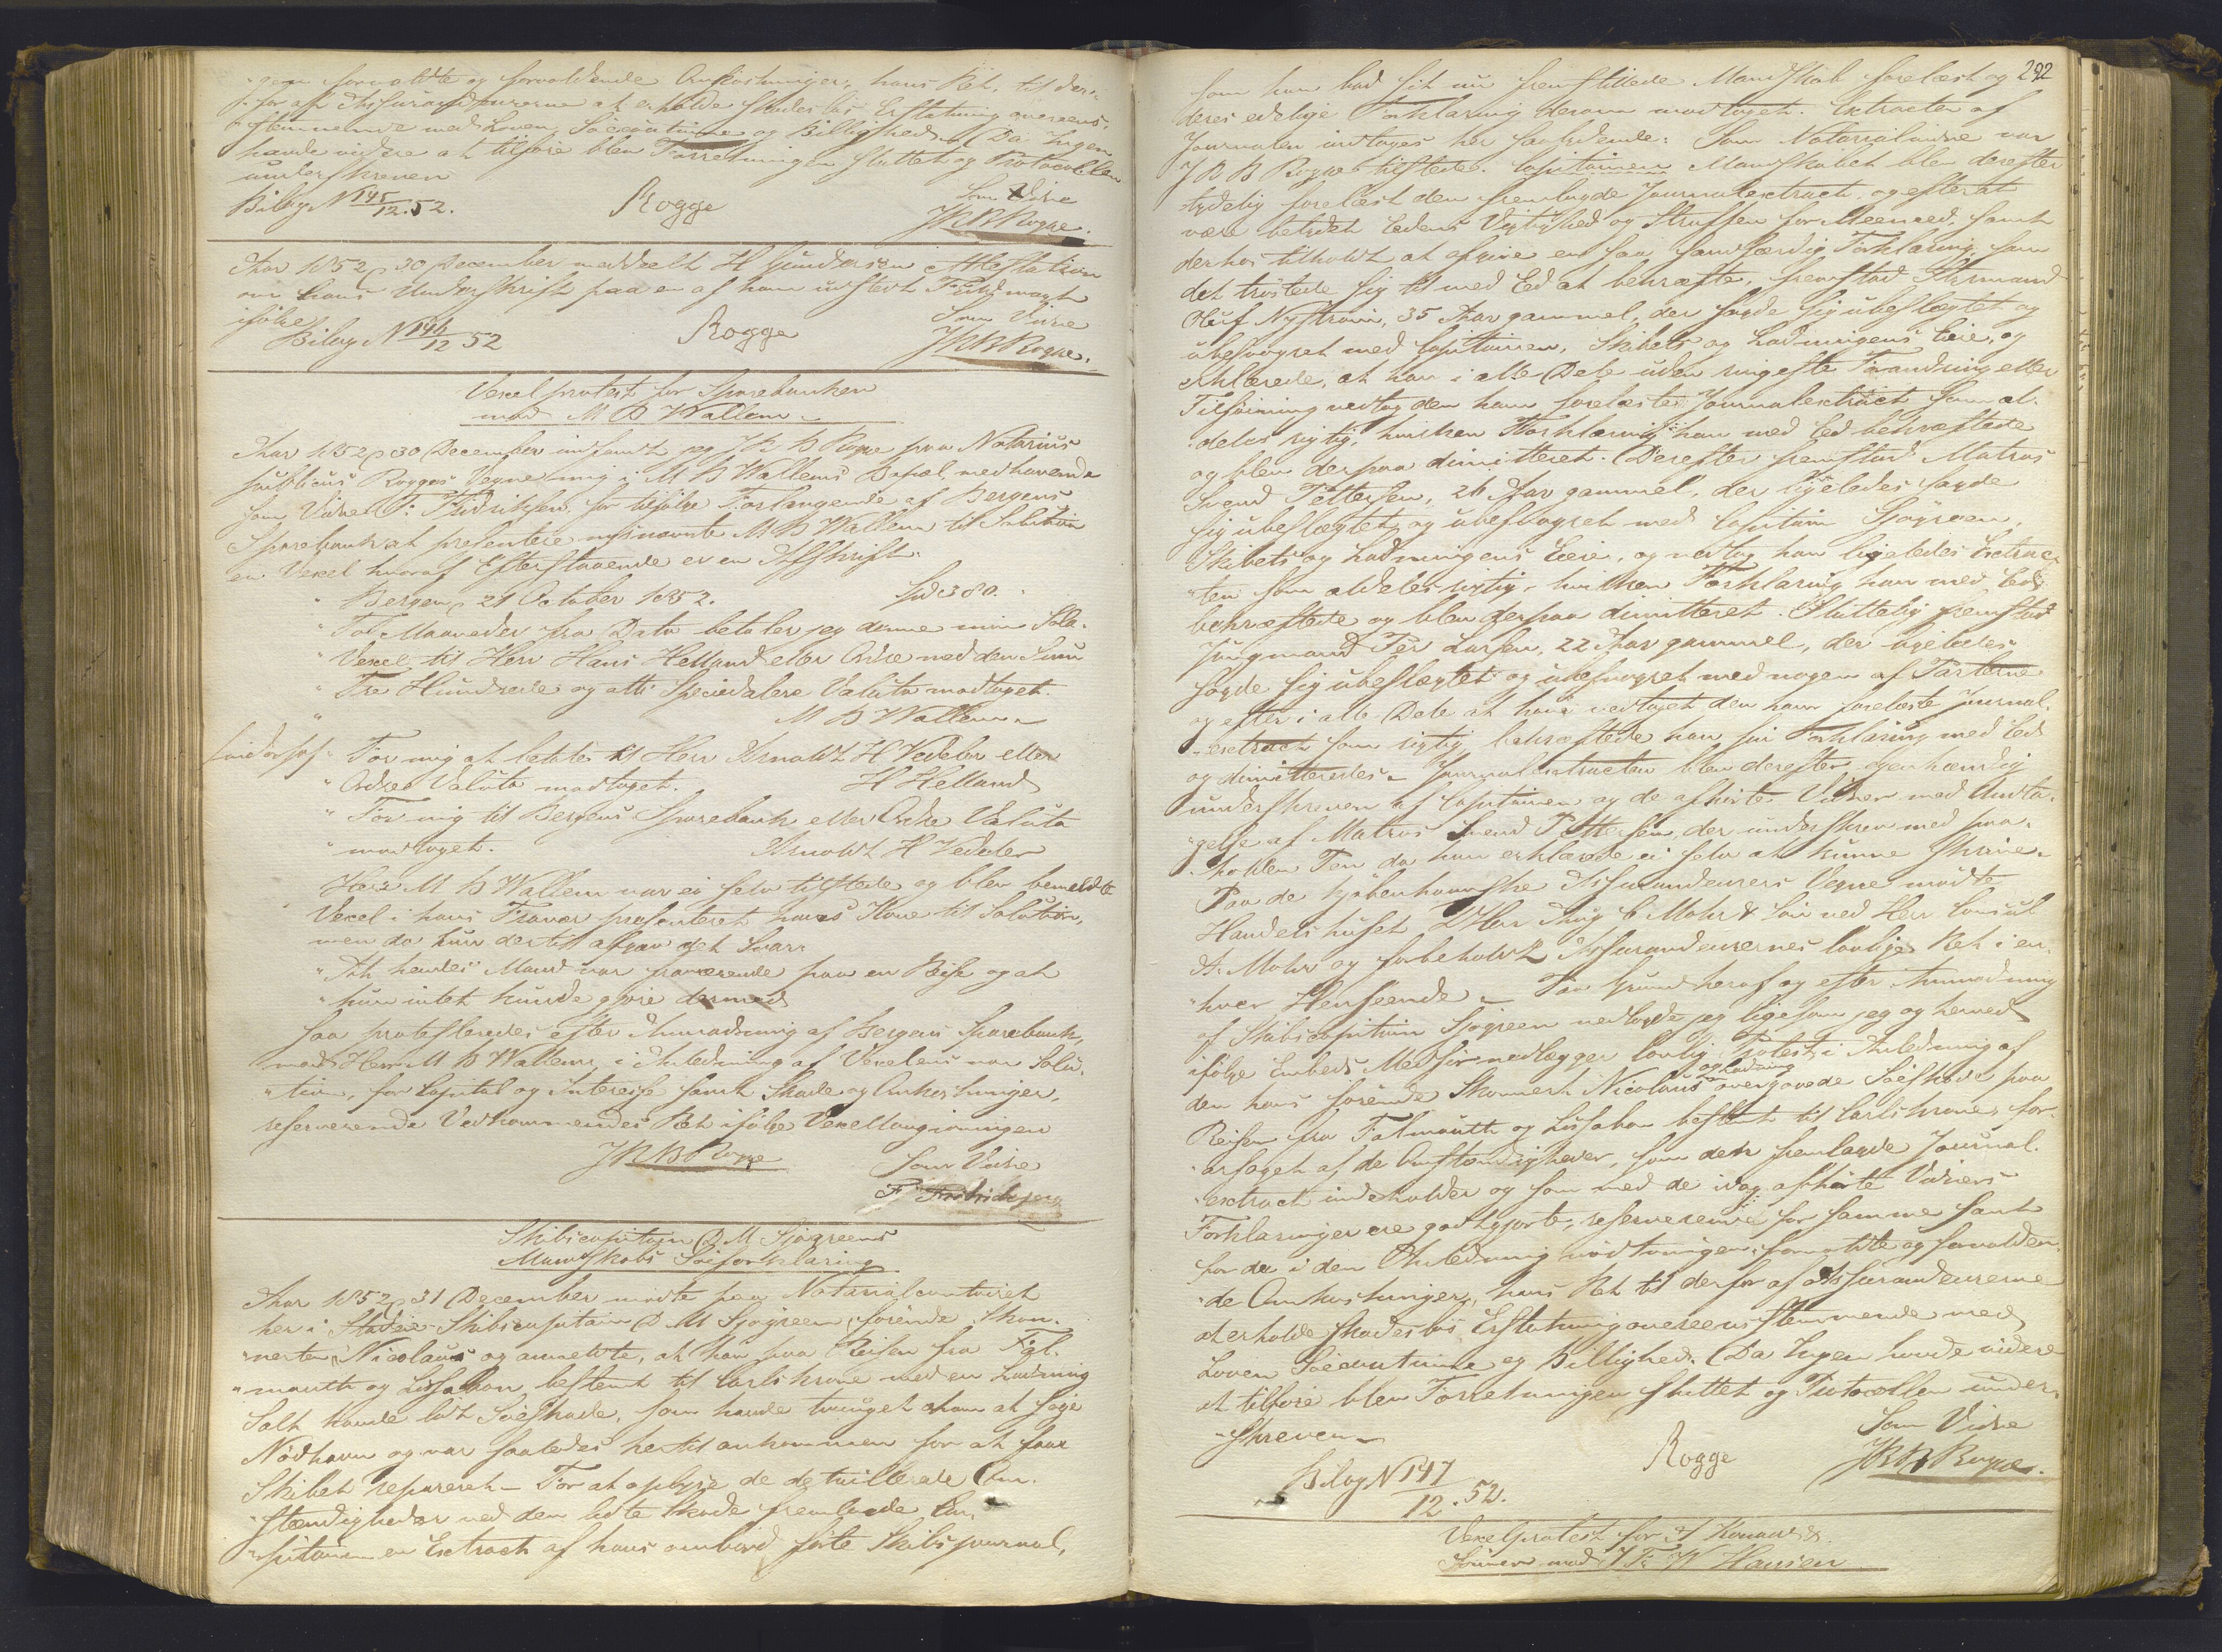 "gen formaldte og forvoldende Omkostninger, hans Ret, til der-
"for af Assurandeurerne at erholde skadesløs Erstatning overeens-
"stemmende med Loven, Søecoutume og Billighed. Da Ingen
havde videre at tilføie blev Forretningen sluttet og Protocollen
underskreven
Bilag N 145/12.52. Rogge Som Vidne
J R B Rogge.
Aar 1852 p 30 December meddeelt H Gundersen Attestation
om hans Underskrift paa en af ham udstedt Fuldmagt
ifølge
Bilag N 146/12 52 Rogge Som Vidne
J R B Rogge.
Vexelprotest for Sparebanken
mod M B Wallem
Aar 1852 p 30 December indfandt jeg J R B Rogge paa Notarius
publicus Rogges Vegne mig i M B Wallems Bopæl, medhavende
som Vidne F. Fredriksen for tilfølge Forlangende af Bergens
Sparebank at presentere nysnævnte M B Wallem til Solution
en Vexel hvoraf Efterstaaende er en Afskrift:
" Bergen p 21 October 1852. Spd 380.
" To Maaneder fra Dato betaler jeg denne min Sola-
" Vexel til Herr Hans Helland eller Ordre med den Sum
" Tre Hundrede og otti Speciedalere Valuta modtaget.
" M B Wallem
indorsf. " For mig at betale til Herr Arnoldt H Vedeler eller
" Ordre Valuta modtaget. H Helland
" For mig til Bergens Sparebank eller Ordre Valuta
" modtaget. Arnoldt H Vedeler
Herr M B Wallem var ei selv tilstede og blev bemeldte
Vexel i hans Fravær presenteret hans Kone til Solution,
men da hun dertil afgav det Svar:
"At hendes Mand var fraværende paa en Reise og at
"hun intet kunde gjøre dermed
saa protesteredes efter Anmodning af Bergens Sparebank,
mod Herr M B Wallem, i Anledning af Vexelens non Solu-
"tion, for Capital og Interesse samt Skade og Omkostninger,
reserverende Vedkommendes Ret ifølge Vexellovgivningen
J R B Rogge Som Vidne
F Fredriksen
Skibscapitain D. M Sjøgreens
Mandskabs Søeforklaring
Aar 1852 p 31 December mødte paa Notarialcontoiret
her i Staden Skibscapitain D. M Sjøgreen, førende Skon-
"nerten Nicolaus og anmeldte, at han paa Reisen fra Fal-
"mouth og Lissabon bestemt til Carlskrone med en Ladning
Salt havde lidt Søeskade, som havde tvunget ham at søge
Nødhavn og var saaledes hertil ankommen for at faae
Skibet repareret. For at oplyse de detaillerede Om-
"stændigheder ved den lidte Skade fremlagde Ca-
"pitainen en Extract af hans ombord førte Skibsjournal,
292
som han bad sit nu fremstillede Mandskab forelæst og
deres edelige Forklaring derom modtaget. Extracten af
Journalen indtages her saalydende: Som Notarialvidne var
J R B Rogge tilstede. Capitainens Mandskabet blev derefter
tydelig forelæst den fremlagde Journalextract, og efter at
være betydet Edens Vigtighed og Straffen for Meeneed, samt
derhos tilholdt at afgive en saa sandfærdig Forklaring som
det trøstede sig til med Eed at bekræfte, fremstod Styrmand
Oluf Nystrøm, 35 Aar gammel, der sagde sig ubeslægtet og
ubesvogret med Capitainen, Skibets og Ladningens Eiere, og
erklærede, at han i alle Dele uden ringeste Forandring eller
Tilføining vedtog den ham forelæste Journalextract som al-
"deles rigtig, hvilken Forklaring han med Eed bekræftede
og blev derpaa dimitteret. Derefter fremstod Matros
Svend Pettersen, 26 Aar gammel, der ligeledes sagde
sig ubeslægtet og ubesvogret med Capitain Sjøgreen,
Skibets og Ladningens Eiere, og vedtog han ligeledes Extrac-
"ten som aldeles rigtig, hvilken Forklaring han med Eed
bekræftede og blev derpaa dimitteret. Sluttelig fremstod
Jungmand Per Larsen, 22 Aar gammel, der ligeledes
sagde sig ubeslægtet og ubesvogret med nogen af Parterne
og efter i alle Dele at have vedtaget den ham forelæste Journal-
"extract som rigtig, bekræftede han sin Forklaring med Eed
og dimitteredes. Journalextracten blev derefter egenhændig
underskreven af Capitainen og de afhørte Vidner med Undta-
"gelse af Matros Svend Pettersen, der underskrev med paa-
"holden Pen da han erklærede ei selv at kunne skrive.
Paa de kjøbenhavnske Assurandeurers Vegne mødte
Handelshuset DHrr Aug C Mohr & Søn ved Herr Consul
A. Mohr og forbeholdt Assurandeurernes lovlige Ret i en-
"hver Henseende. Paa Grund heraf og efter Anmodning
af Skibscapitain Sjøgreen nedlagde jeg ligesom jeg og herved
ifølge Embeds Medfør nedlægger lovlig Protest i Anledning af
den hans førende Skonnert Nicolaus og Ladning overgaaede Søeskade paa
Reisen fra Falmouth og Lissabon bestemt til Carlskrone, for-
"arsaget af de Omstændigheder, som den fremlagde Journal-
"extract indeholder og som med de idag afhørte Vidners
Forklaringer ere godtgjorte, reserverende for samme samt
for de i den Anledning nødtvungen formaldte og forvolden-
"de Omkostninger, hans Ret til derfor af Assurandeurerne
at erholde skadesløs Erstatning overeensstemmende med
Loven Søecoutume og Billighed. Da Ingen havde videre
at tilføie blev Forretningen sluttet og Protocollen under-
"skreven
Bilag N 147/12.52. Rogge Som Vidne
J R B Rogge.
Vexelprotest for J Konow &
Sønner mod J Fr W Hansen